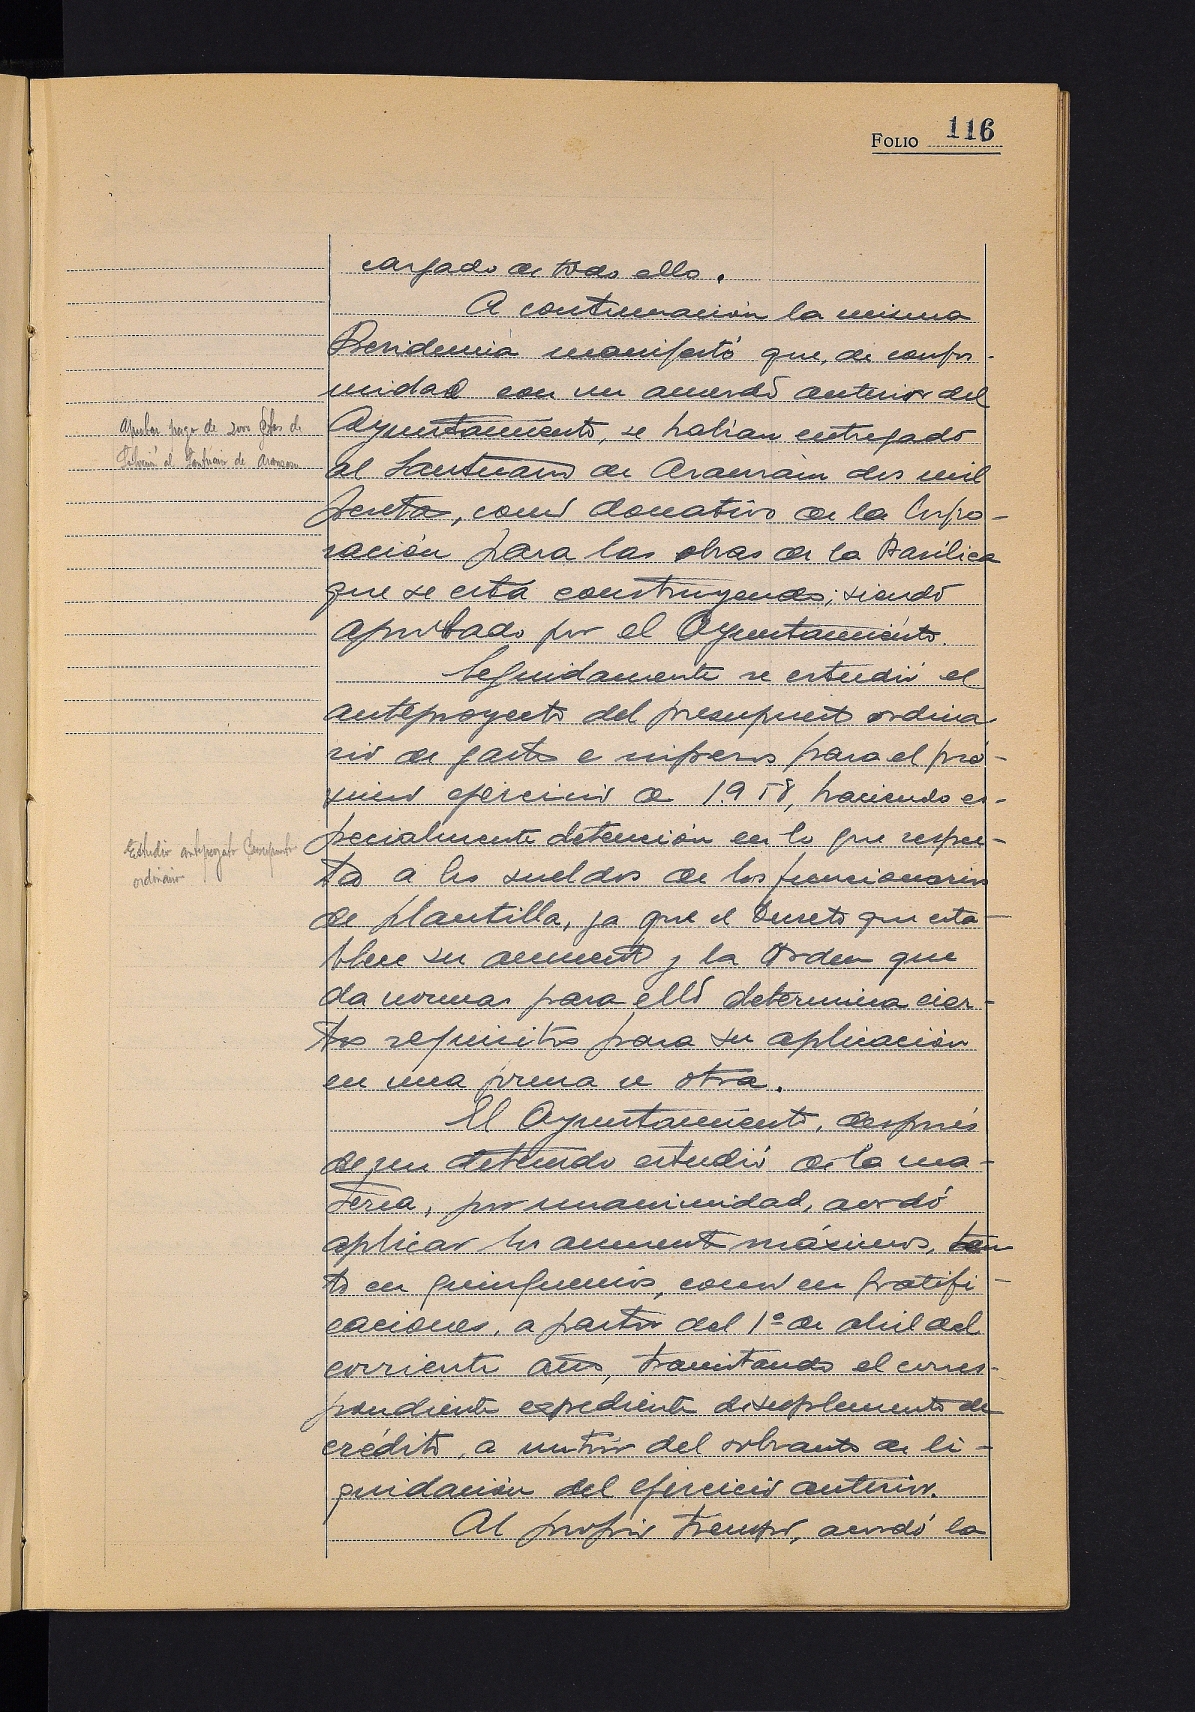 FOLIO 116
cargado de todo ello.
A continuación la misma
Presidencia manifestó que, de confor-
midad con un acuerdo anterior del
Ayuntamiento, se habían entregado
Aprobar pago de 2000 ptas de
al Santuario de Aranzazu dos mil
al Santuario de Aranzazu
pesetas, como donativo de la Corpo-
ración para las obras de la Basílica
que se está construyendo; siendo
aprobado por el Ayuntamiento.
Seguidamente se estudió el
anteproyecto del presupuesto ordina
rio de gastos e ingresos para el pró-
ximo ejercicio de 1.958, haciendo es-
pecialmente detención en lo que respec-
Estudio anteproyecto Presupuesto
ordinario
ta a los sueldos de los funcionarios
de plantilla, ya que el Decreto que esta-
blece su aumento y la Orden que
da normas para ello determina cier-
tos requisitos para su aplicación
en una forma u otra.
El Ayuntamiento, después
de un detenido estudio de la ma-
teria, por unanimidad, acordó
aplicar los aumentos máximos, tan
to en quinquenios, como en gratifi-
caciones, a partir del 1º de abril del
corriente año, tramitando el corres-
pondiente expediente de suplemento de
crédito, a nutrir del sobrante de li-
quidación del ejercicio anterior.
Al propio tiempo, acordó la